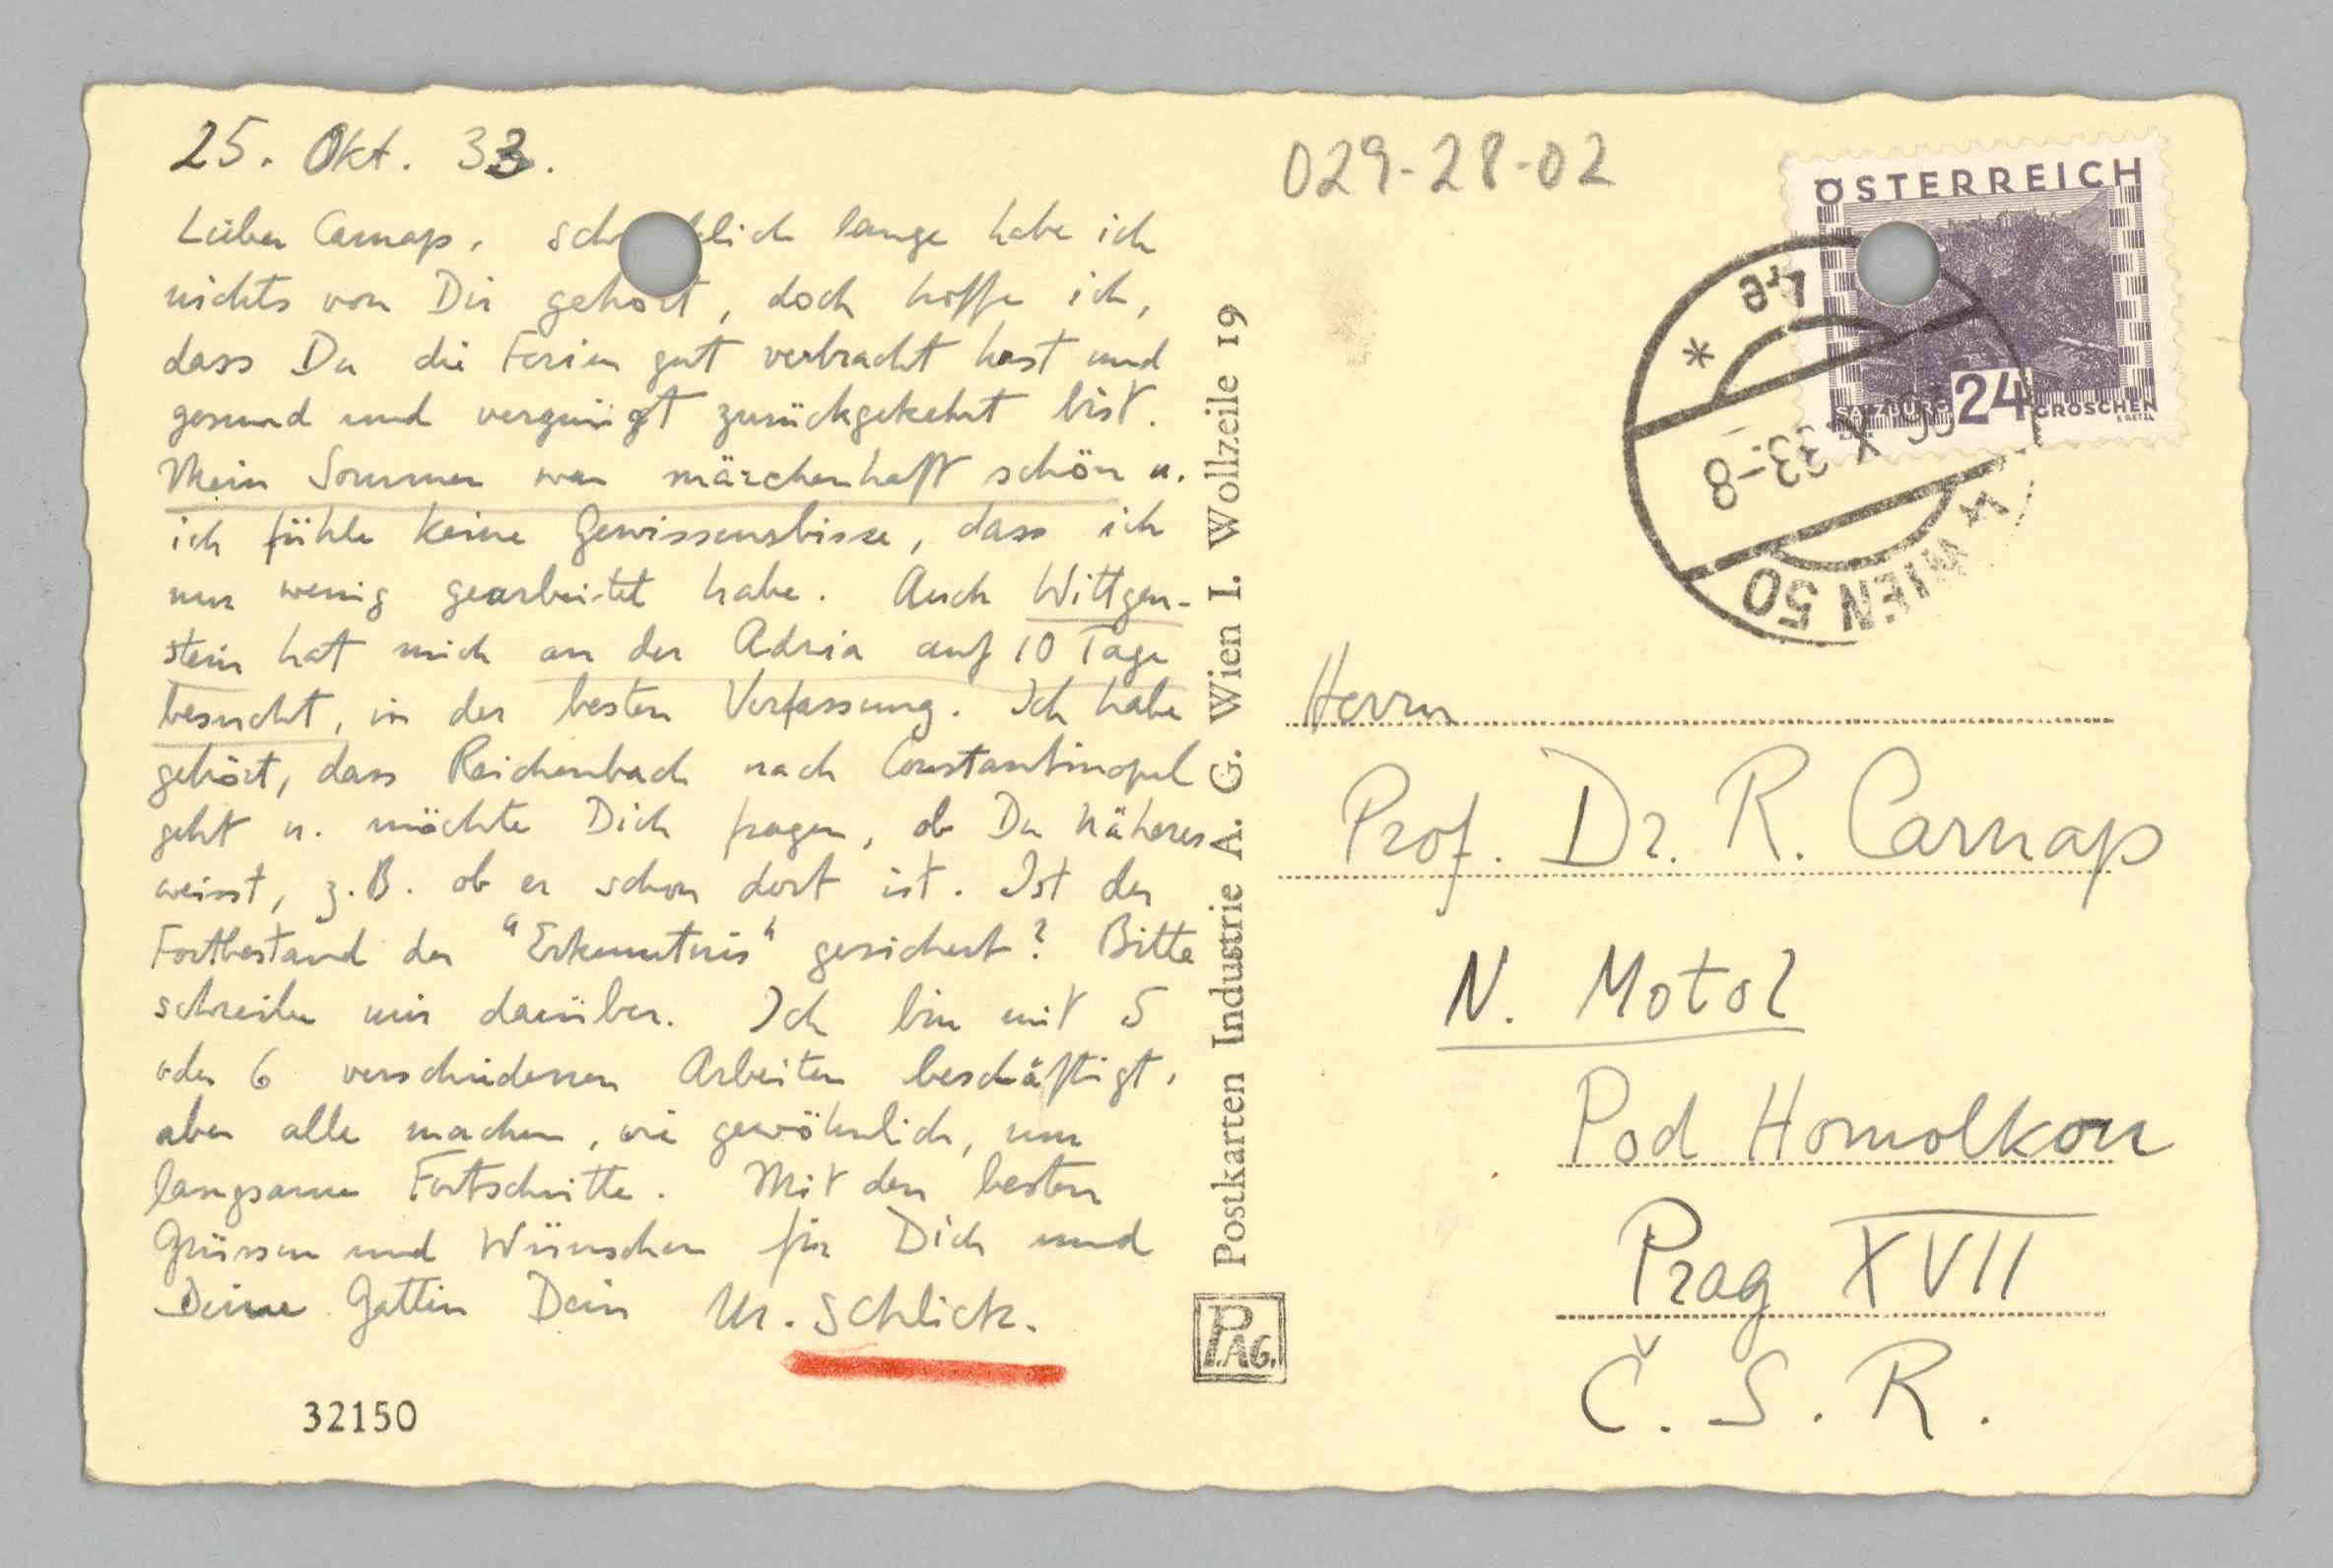 25. Okt. 33.
Lieber Carnap, schrecklich lange habe ich
nichts von Dir gehört, doch hoffe ich,
dass Du die Ferien gut verbracht hast und
gesund und vergnügt zurückgekehrt bist.
Mein Sommer war märchenhaft schön u.
ich fühle keine Gewissensbisse, dass ich
nur wenig gearbeitet habe. Auch Wittgen-
stein hat mich an der Adria auf 10 Tage
besucht, in der besten Verfassung. Ich habe
gehört, dass Reichenbach nach Constantinopel
geht u. möchte Dich fragen, ob Du Näheres
weisst, z.B. ob er schon dort ist. Ist der
Fortbestand der "Erkenntnis" gesichert? Bitte
schreibe mir darüber. Ich bin mit 5
oder 6 verschiedenen Arbeiten beschäftigt,
aber alle machen, wie gewöhnlich, nur
langsame Fortschritte. Mit den besten
Grüssen und Wünschen für Dich und
Deine Gattin Dein M. Schlick.
32150
Postkarten Industrie A. G. Wien I. Wollzeile 19
PAG.
029-28-02
ÖSTERREICH
SALZBURG 24 GROSCHEN
* 4e
X. 33-8
4 WIEN 50
Herrn
Prof. Dr. R. Carnap
N. Motol
Pod Homolkou
Prag XVII
Č. S. R.